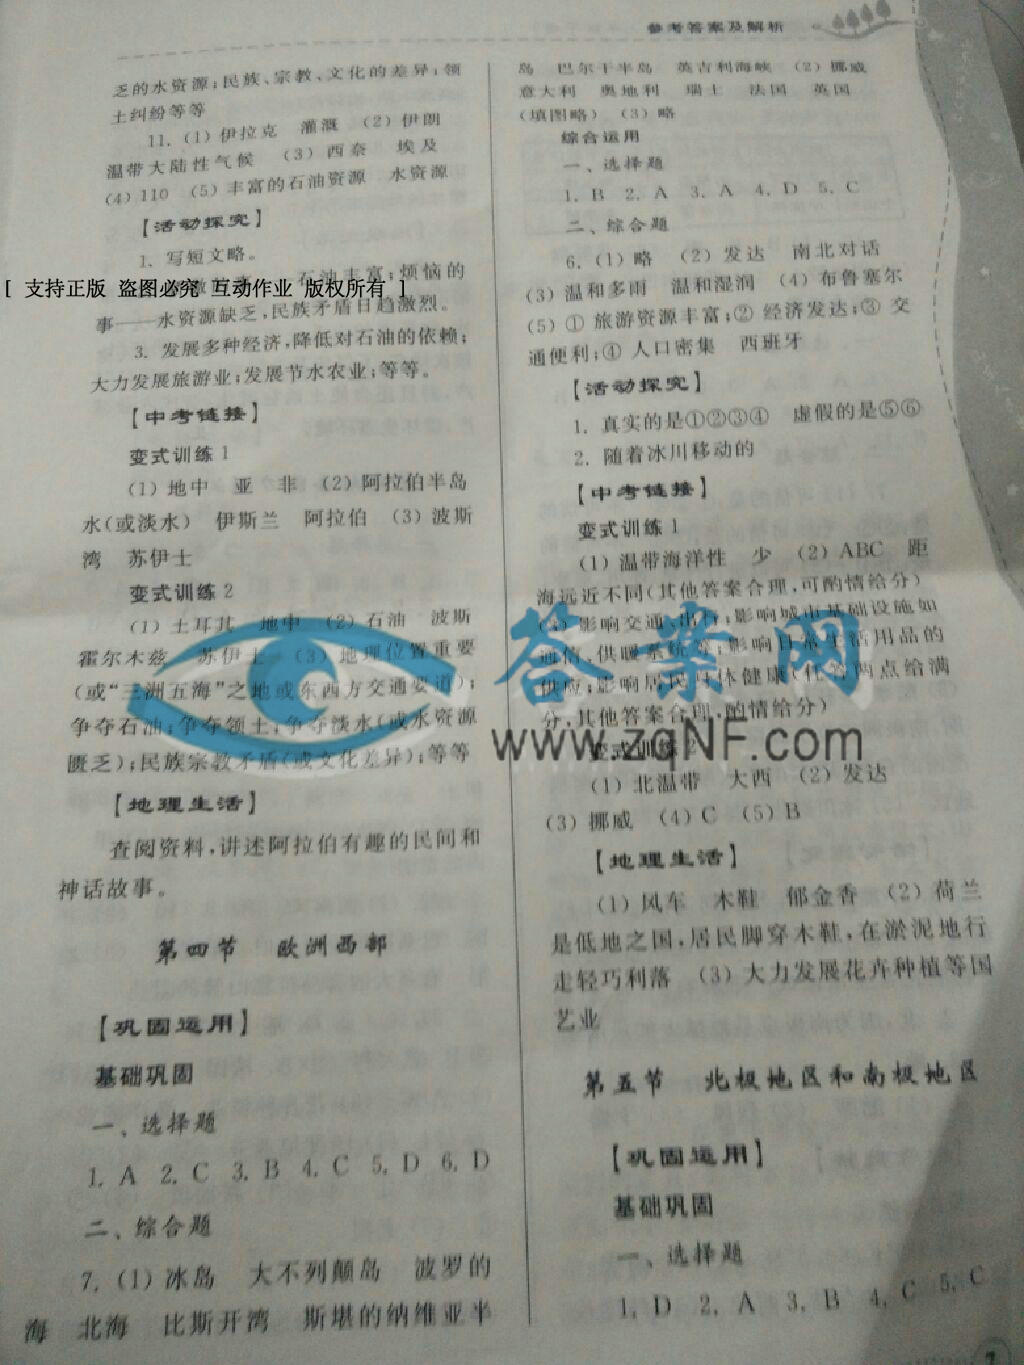 参考答案及解析
乏的水资源;民族、宗教、文化的差异;领
土纠纷等等
11. (1) 伊拉克 灌溉 (2) 伊朗
温带大陆性气候 (3) 西奈 埃及
(4) 110 (5) 丰富的石油资源 水资源
【活动探究】
1. 写短文略。
石油丰富;烦恼的
[ 支持正版 盗图必究 互动作业 版权所有 ]
事——水资源缺乏,民族矛盾日趋激烈。
3. 发展多种经济,降低对石油的依赖;
大力发展旅游业;发展节水农业;等等。
【中考链接】
变式训练 1
(1) 地中 亚 非 (2) 阿拉伯半岛
水(或淡水) 伊斯兰 阿拉伯 (3) 波斯
湾 苏伊士
变式训练 2
(1) 土耳其 地中 (2) 石油 波斯
霍尔木兹 苏伊士 (3) 地理位置重要
(或“三洲五海”之地或东西方交通要道);
争夺石油;争夺领土;争夺淡水(或水资源
匮乏);民族宗教矛盾(或文化差异);等等
【地理生活】
查阅资料,讲述阿拉伯有趣的民间和
神话故事。
第四节 欧洲西部
【巩固运用】
基础巩固
一、选择题
1. A 2. C 3. B 4. C 5. D 6. D
二、综合题
7. (1) 冰岛 大不列颠岛 波罗的
海 北海 比斯开湾 斯堪的纳维亚半
岛 巴尔干半岛 英吉利海峡 (2) 挪威
意大利 奥地利 瑞士 法国 英国
(填图略) (3) 略
综合运用
一、选择题
1. B 2. A 3. A 4. D 5. C
二、综合题
6. (1) 略 (2) 发达 南北对话
(3) 温和多雨 温和湿润 (4) 布鲁塞尔
(5) ① 旅游资源丰富;② 经济发达;③ 交
通便利;④ 人口密集 西班牙
【活动探究】
1. 真实的是①②③④ 虚假的是⑤⑥
2. 随着冰川移动的
【中考链接】
变式训练 1
(1) 温带海洋性 少 (2) ABC 距
海远近不同(其他答案合理,可酌情给分)
(3) 影响交通、出行;影响城市基础设施如
通信、供暖系统等;影响日常生活用品的
供应;影响居民身体健康(任答两点给满
分,其他答案合理,酌情给分)
变式训练 2
(1) 北温带 大西 (2) 发达
(3) 挪威 (4) C (5) B
【地理生活】
(1) 风车 木鞋 郁金香 (2) 荷兰
是低地之国,居民脚穿木鞋,在淤泥地行
走轻巧利落 (3) 大力发展花卉种植等园
艺业
第五节 北极地区和南极地区
【巩固运用】
基础巩固
一、选择题
1. D 2. A 3. B 4. C 5. C
答案网
www.zqNF.com